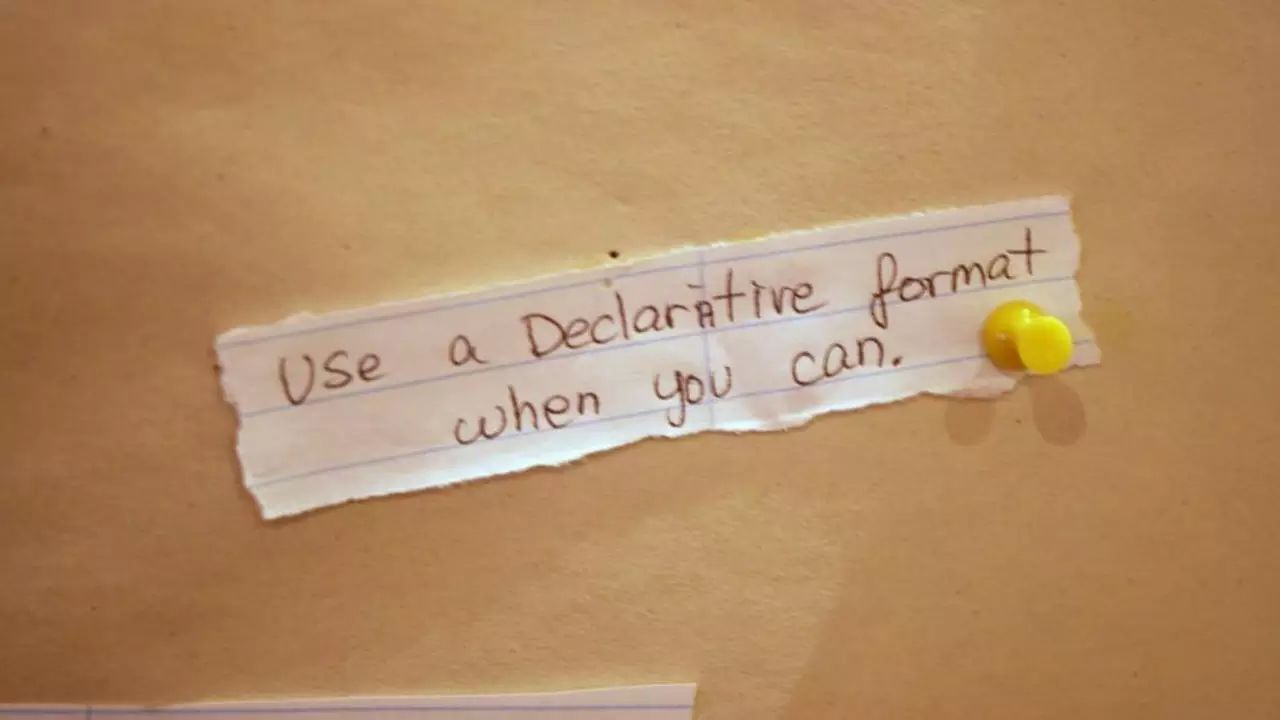 Use a Declarative format
when you can.